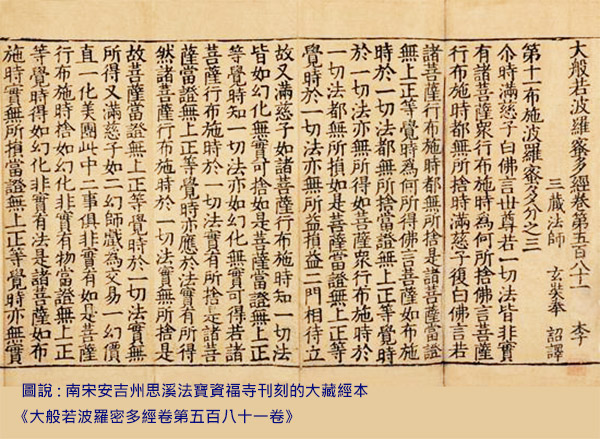 大般若波羅蜜多經卷第五百八十一 李
三藏法師 玄奘奉 詔譯
第十一布施波羅蜜多分之三
尒時滿慈子白佛言世尊若一切法皆非實
有諸菩薩衆行布施時為何所捨佛言菩薩
行布施時都無所捨時滿慈子復白佛言若
諸菩薩行布施時都無所捨是諸菩薩當證
無上正等覺時為何所得佛言菩薩如布施
時於一切法都無所捨當證無上正等覺時
於一切法亦無所得如菩薩衆行布施時於
一切法都無所損如是菩薩當證無上正等
覺時於一切法亦無所益損益二門相待立
故又滿慈子如諸菩薩行布施時知一切法
皆如幻化無實可捨如是菩薩當證無上正
等覺時知一切法亦如幻化無實可得若諸
菩薩行布施時於一切法實有所捨是諸菩
薩當證無上正等覺時亦應於法實有所得
然諸菩薩行布施時於一切法實無所捨是
故菩薩當證無上正等覺時於一切法實無
所得又滿慈子如二幻師戲為交易一幻價
直一化美團此中二事俱非實有如是菩薩
行布施時捨如幻化非實有物當證無上正
等覺時得如幻化非實有法是諸菩薩如布
施時實無所損當證無上正等覺時亦無實
圖說：南宋安吉州思溪法寶資福寺刊刻的大藏經本
《大般若波羅密多經卷第五百八十一卷》